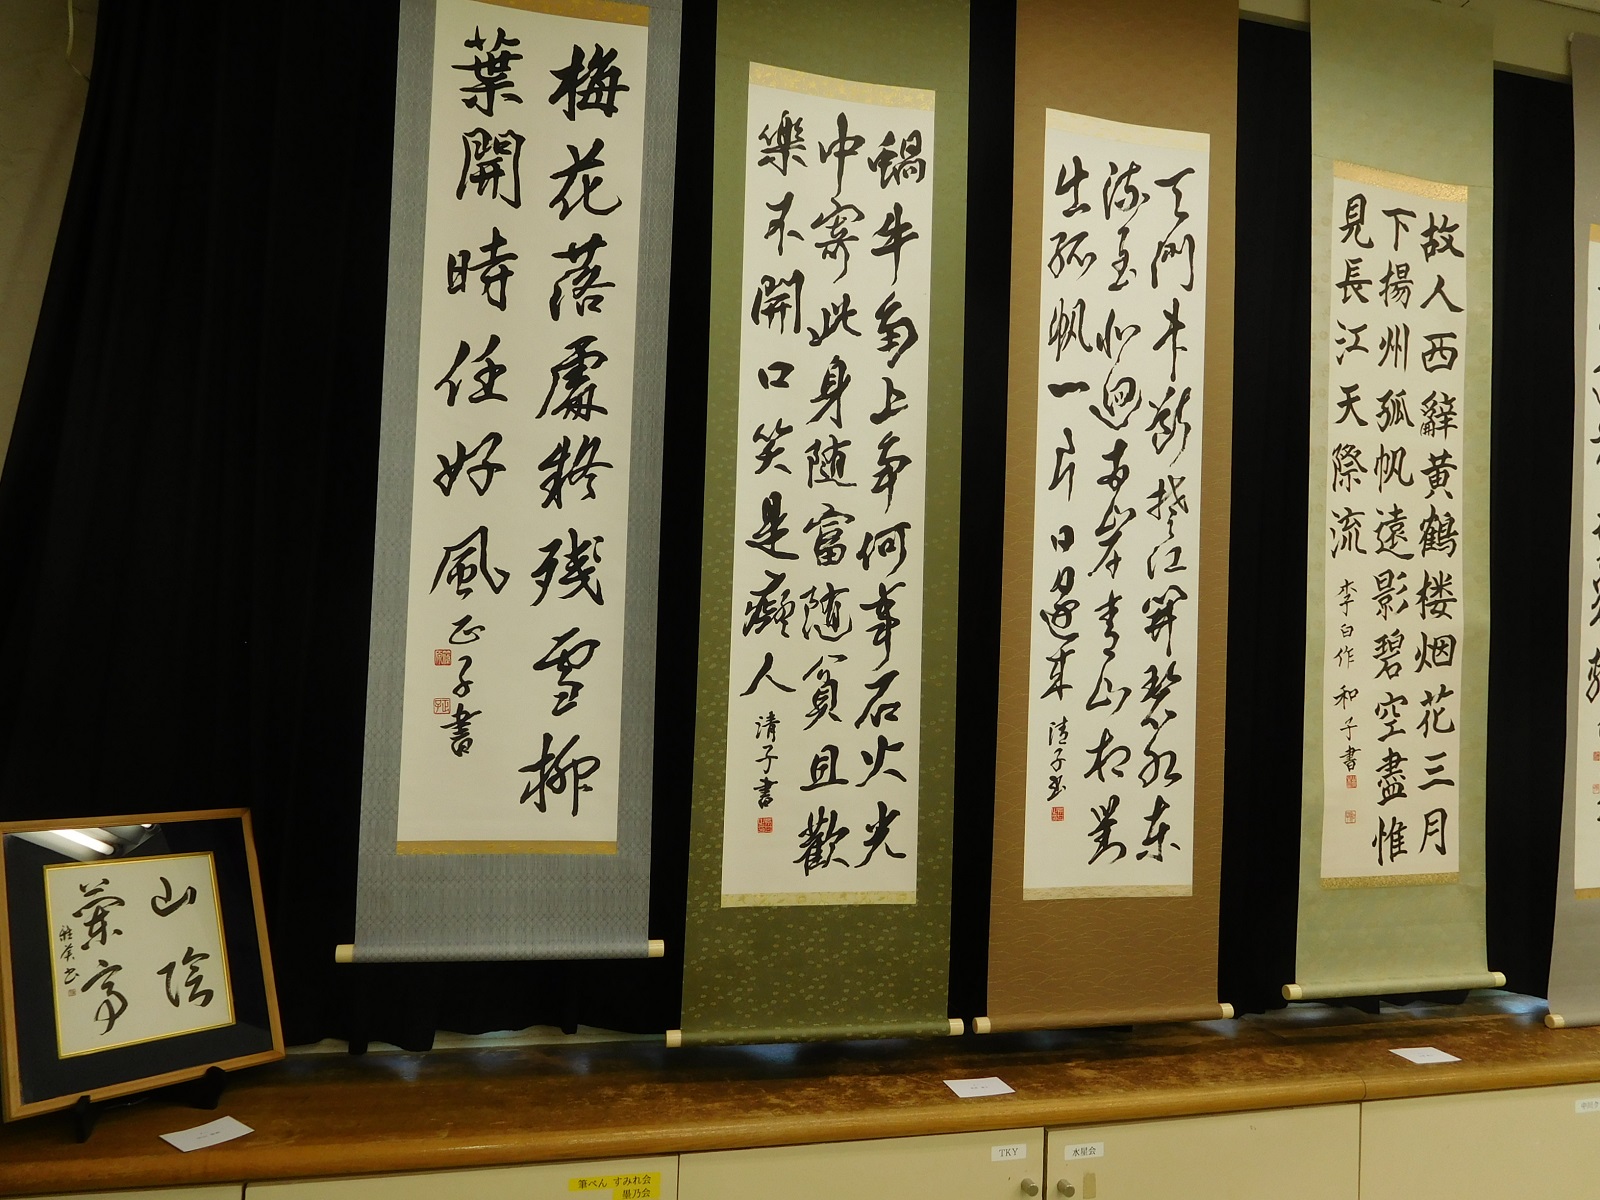 山陰
蘭亭
梅花落處疑残雪柳
葉開時任好風 正子書
蝸牛角上争何事石火光
中寄此身随富随貧且歡
樂不開口笑是癡人 清子書
天門中断楚江開碧水東
流至北廻両岸青山相對
出孤帆一片日邊来 清子書
故人西辭黄鶴楼烟花三月
下揚州孤帆遠影碧空盡惟
見長江天際流 李白作 和子書
筆ぺん すみれ会
墨乃会
TKY
水星会